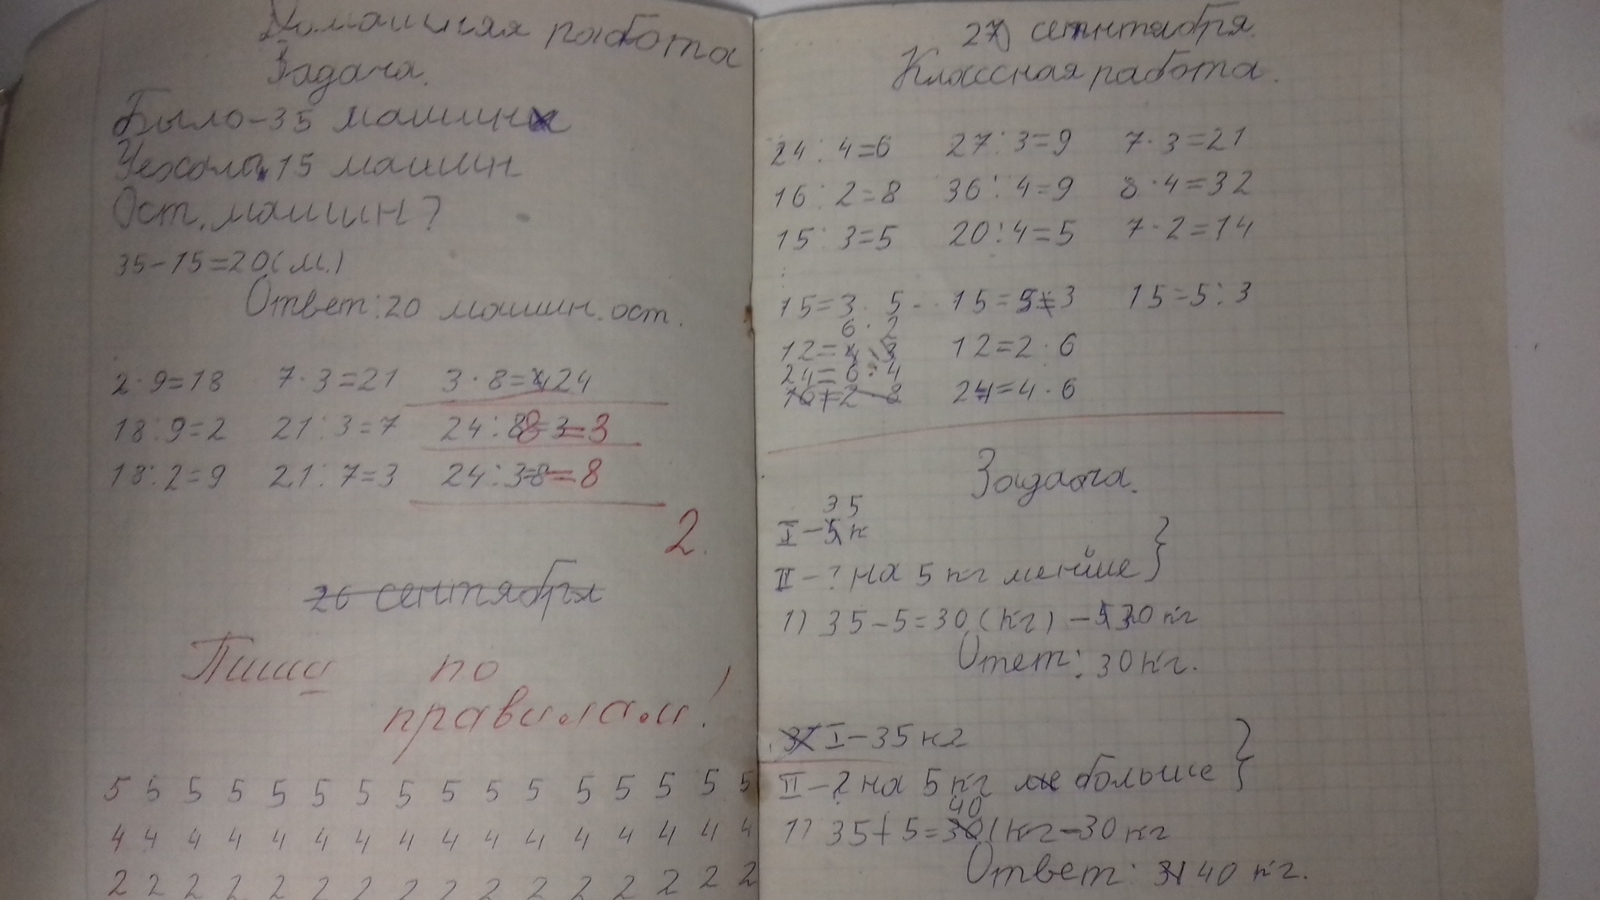 Домашняя работа
Задача.
Было-35 машин
Уехало 15 машин
Ост. машин?
35-15=20(м.)
Ответ:20 машин.ост.
2·9=18 7·3=21 3·8=24
18:9=2 21:3=7 24:8=3=3
18:2=9 21:7=3 24:3=8=8
2.
26 сентября
Пишу по
правилам!
5 5 5 5 5 5 5 5 5 5 5 5 5 5 5 5
4 4 4 4 4 4 4 4 4 4 4 4 4 4 4 4
2 2 2 2 2 2 2 2 2 2 2 2 2 2 2 2
27 сентнтября.
Классная работа.
24:4=6 27:3=9 7·3=21
16:2=8 36:4=9 8·4=32
15:3=5 20:4=5 7·2=14
15=3·5 15=5·3 15=5:3
6·2
12= 12=2·6
24=6·4
16=2 8 24=4·6
Задача.
35
I- кг
II-? на 5 кг менйше}
1) 35-5=30(кг)-30кг
Отет: 30кг.
I-35кг
II-? на 5кг больше}
40
1) 35+5=30(кг-30кг
Ответ: 40кг.